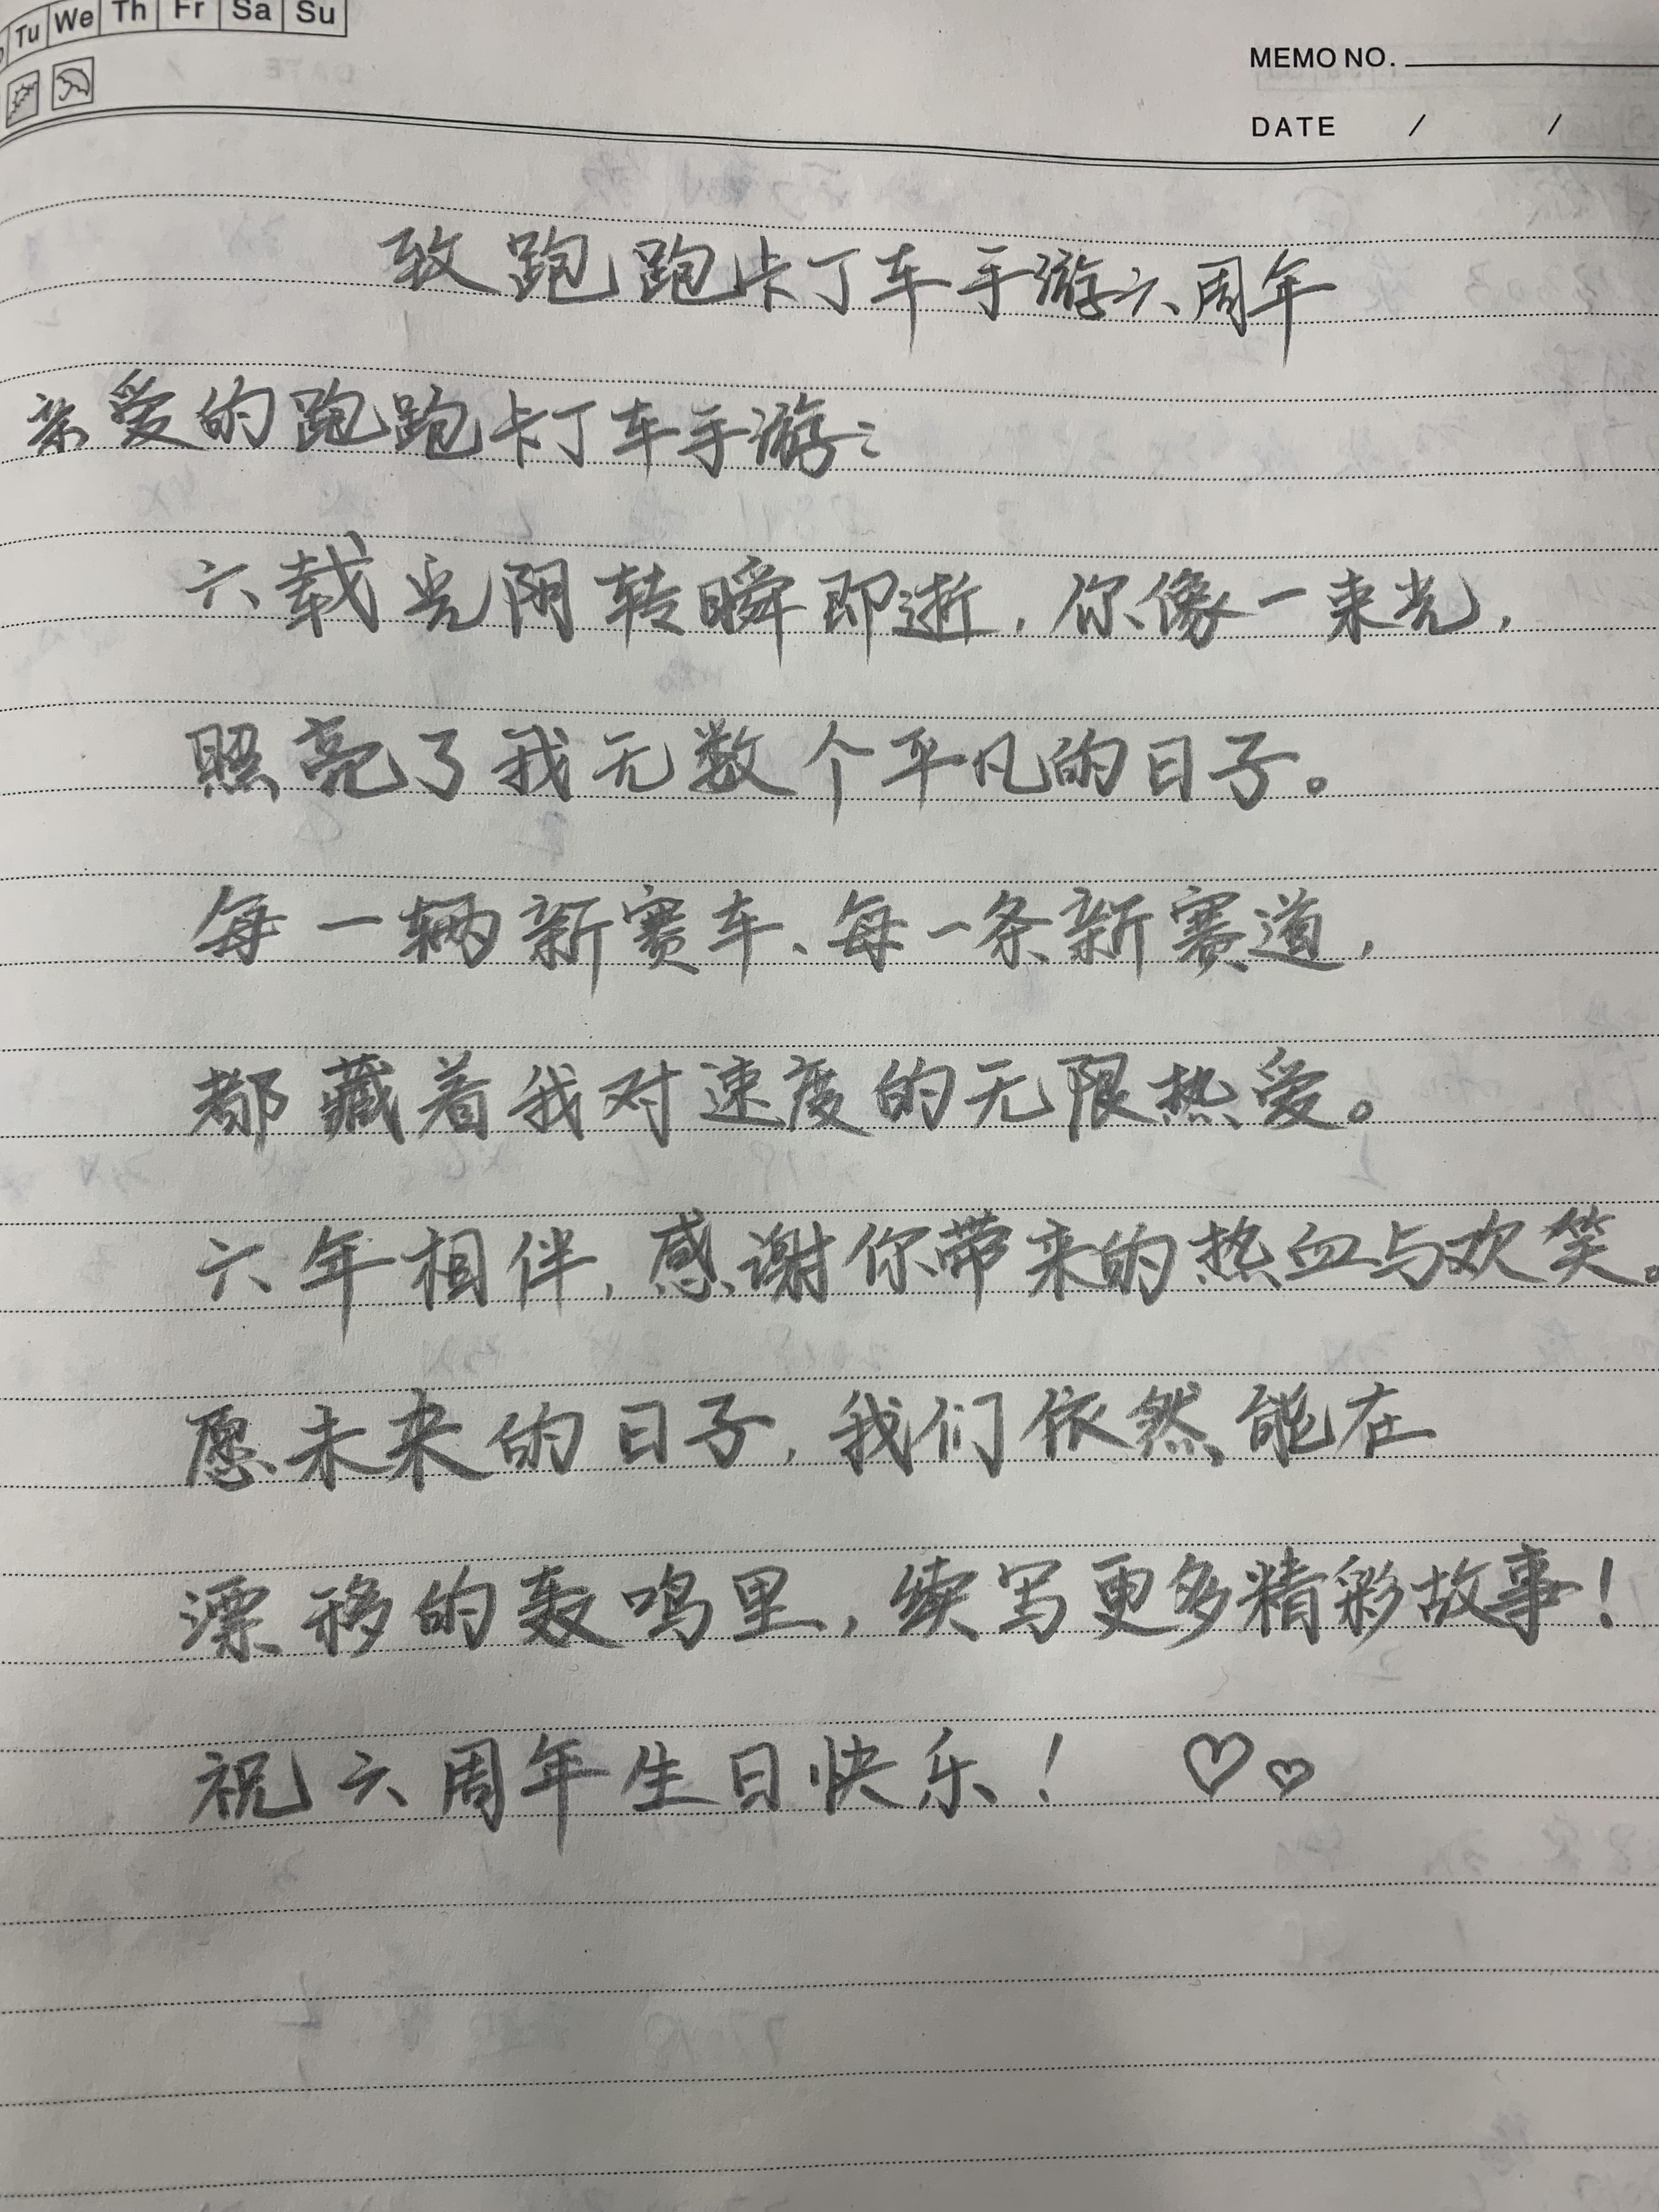 Tu We Th Fr Sa Su
MEMO NO.
DATE / /
致跑跑卡丁车手游六周年
亲爱的跑跑卡丁车手游：
六载光阴转瞬即逝，你像一束光，
照亮了我无数个平凡的日子。
每一辆新赛车、每一条新赛道，
都藏着我对速度的无限热爱。
六年相伴，感谢你带来的热血与欢笑。
愿未来的日子，我们依然能在
漂移的轰鸣里，续写更多精彩故事！
祝六周年生日快乐！ ♡♡